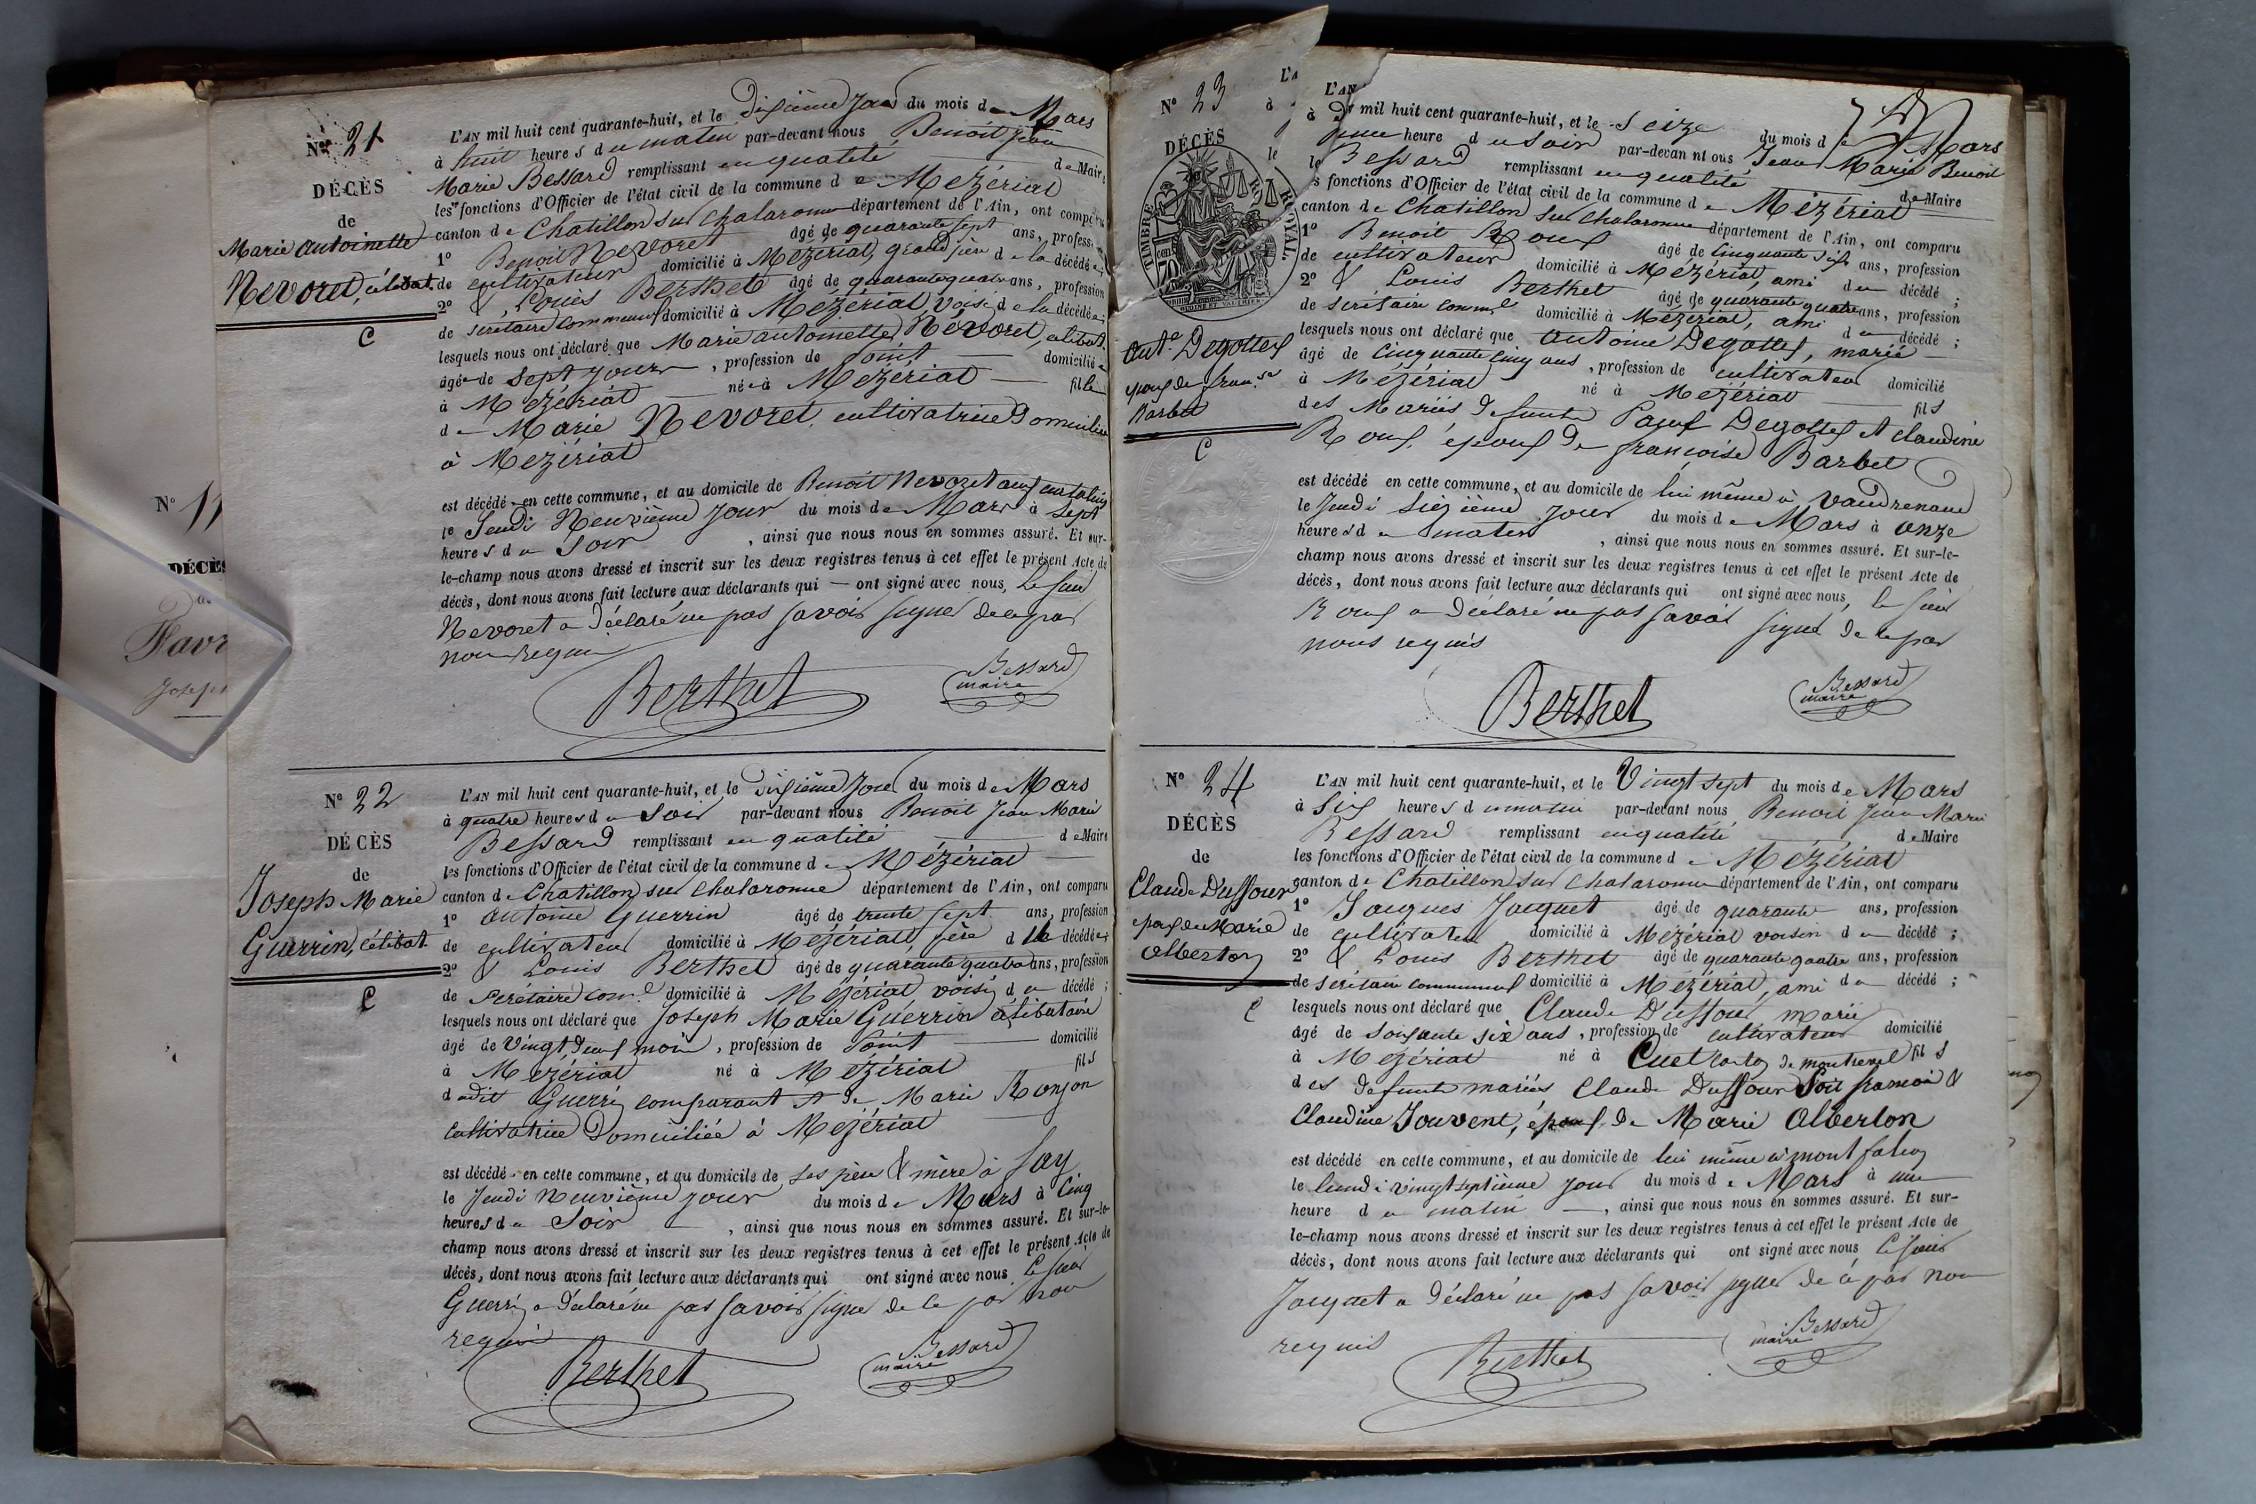 N° 21
DÉCÈS
de
Marie antoinette
Nevoret, célibat.
C
L'AN mil huit cent quarante-huit, et le dixième jour du mois de Mars
à huit heures du matin par-devant nous Benoit Jean
Marie Bessard remplissant en qualité de Maire
les fonctions d'Officier de l'état civil de la commune de Mézériat
canton de Chatillon sur chalaronne département de l'Ain, ont comparu
1° Benoit Nevoret âgé de quarante sept ans, profession
de cultivateur domicilié à Mézériat, grand père de la décédée;
2° & Louis Berthet âgé de quarante quatre ans, profession
de secrétaire communal domicilié à Mézériat, voisin de la décédée;
lesquels nous ont déclaré que Marie antoinette Névoret, célibat.
âgée de sept jours, profession de point domiciliée
à Mézériat née à Mézériat fille
de Marie Nevoret, cultivatrice Domiciliée
à Mézériat
est décédée en cette commune, et au domicile de Benoit Nevoret
le Jeudi Neuvième jour du mois de Mars à sept
heures du Soir, ainsi que nous nous en sommes assuré. Et sur-
le-champ nous avons dressé et inscrit sur les deux registres tenus à cet effet le présent Acte de
décès, dont nous avons fait lecture aux déclarants qui — ont signé avec nous, Le sieur
Nevoret a déclaré ne pas savoir signer de ce par
nous requis
Berthet
Bessard
maire
N° 22
DÉCÈS
de
Joseph Marie
Guerrin, célibat.
C
L'AN mil huit cent quarante-huit, et le dixième jour du mois de Mars
à quatre heures du soir par-devant nous Benoit Jean Marie
Bessard remplissant en qualité de Maire
les fonctions d'Officier de l'état civil de la commune de Mézériat
canton de Chatillon sur chalaronne département de l'Ain, ont comparu
1° antoine Guerrin âgé de trente sept ans, profession
de cultivateur domicilié à Mézériat, père du décédé;
2° & Louis Berthet âgé de quarante quatre ans, profession
de secrétaire com.l domicilié à Mézériat voisin du décédé;
lesquels nous ont déclaré que Joseph Marie Guerrin célibataire
âgé de vingt deux mois, profession de point domicilié
à Mézériat né à Mézériat fils
dudit Guerrin comparant et de Marie Ronjon
cultivatrice Domiciliée à Mézériat
est décédé en cette commune, et au domicile de ses père & mère à Fay
le Jeudi Neuvième jour du mois de Mars à Cinq
heures du Soir, ainsi que nous nous en sommes assuré. Et sur-le-
champ nous avons dressé et inscrit sur les deux registres tenus à cet effet le présent Acte de
décès, dont nous avons fait lecture aux déclarants qui ont signé avec nous Le sieur
Guerrin a déclaré ne pas savoir signer de ce par nous
requis
Berthet
Bessard
maire
N° 11
DÉCÈS
de
Favr
Joseph
N° 23
DÉCÈS
TIMBRE ROYAL.
70
Ant.e Degottex
époux de Fran.se
Barbet
C
L'AN mil huit cent quarante-huit, et le Seize du mois de Mars
à une heure du soir par-devant nous Jean Marie Benoit
Bessard remplissant en qualité de Maire
les fonctions d'Officier de l'état civil de la commune de Mézériat
canton de Chatillon sur chalaronne département de l'Ain, ont comparu
1° Benoit Roux âgé de cinquante six ans, profession
de cultivateur domicilié à Mézériat, ami du décédé;
2° & Louis Berthet âgé de quarante quatre ans, profession
de secrétaire comm.l domicilié à Mézériat, ami du décédé;
lesquels nous ont déclaré que Antoine Degottex, marié
âgé de cinquante cinq ans, profession de cultivateur domicilié
à Mézériat né à Mézériat fils
des Mariés défunts Degottex et claudine
Roux, époux de françoise Barbet
est décédé en cette commune, et au domicile de lui même à Vaudrenand
le Jeudi Seizième jour du mois de Mars à onze
heures du matin, ainsi que nous nous en sommes assuré. Et sur-le-
champ nous avons dressé et inscrit sur les deux registres tenus à cet effet le présent Acte de
décès, dont nous avons fait lecture aux déclarants qui ont signé avec nous, le sieur
Roux a déclaré ne pas savoir signer de ce par
nous requis
Berthet
Bessard
maire
N° 24
DÉCÈS
de
Claude Duffour
époux de Marie
Alberton
C
L'AN mil huit cent quarante-huit, et le Vingt sept du mois de Mars
à Six heures du matin par-devant nous Benoit Jean Marie
Bessard remplissant en qualité de Maire
les fonctions d'Officier de l'état civil de la commune de Mézériat
canton de Chatillon sur chalaronne département de l'Ain, ont comparu
1° Jacques Jacquet âgé de quarante ans, profession
de cultivateur domicilié à Mézériat voisin du décédé;
2° & Louis Berthet âgé de quarante quatre ans, profession
de secrétaire communal domicilié à Mézériat, ami du décédé;
lesquels nous ont déclaré que Claude Duffour, marié
âgé de soixante six ans, profession de cultivateur domicilié
à Mézériat né à Cuet canton de montrevel fils
des défunts mariés Claude Duffour Soit françois &
Claudine Jouvent, époux de Marie Alberton
est décédé en cette commune, et au domicile de lui même à montfalcon
le lundi vingt septième jour du mois de Mars à une
heure du matin, ainsi que nous nous en sommes assuré. Et sur-
le-champ nous avons dressé et inscrit sur les deux registres tenus à cet effet le présent Acte de
décès, dont nous avons fait lecture aux déclarants qui ont signé avec nous le sieur
Jacquet a déclaré ne pas savoir signer de ce par nous
requis
Berthet
Bessard
maire